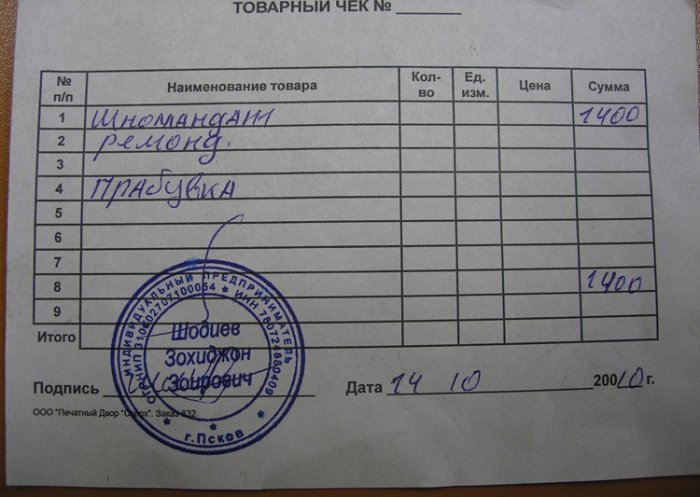 ТОВАРНЫЙ ЧЕК №
№ п/п Наименование товара Кол-во Ед. изм. Цена Сумма
1 Шномандаж 1400
2 ремонд.
3
4 прабувка
5
6
7
8 1400
9
Итого
ИНДИВИДУАЛЬНЫЙ ПРЕДПРИНИМАТЕЛЬ
ОГРНИП 310602707100054 * ИНН 780724860409
Шодиев
Зохиджон
Зоирович
г.Псков
Подпись Дата 14 10 20010 г.
ООО "Печатный Двор "Стерх". Заказ 832.